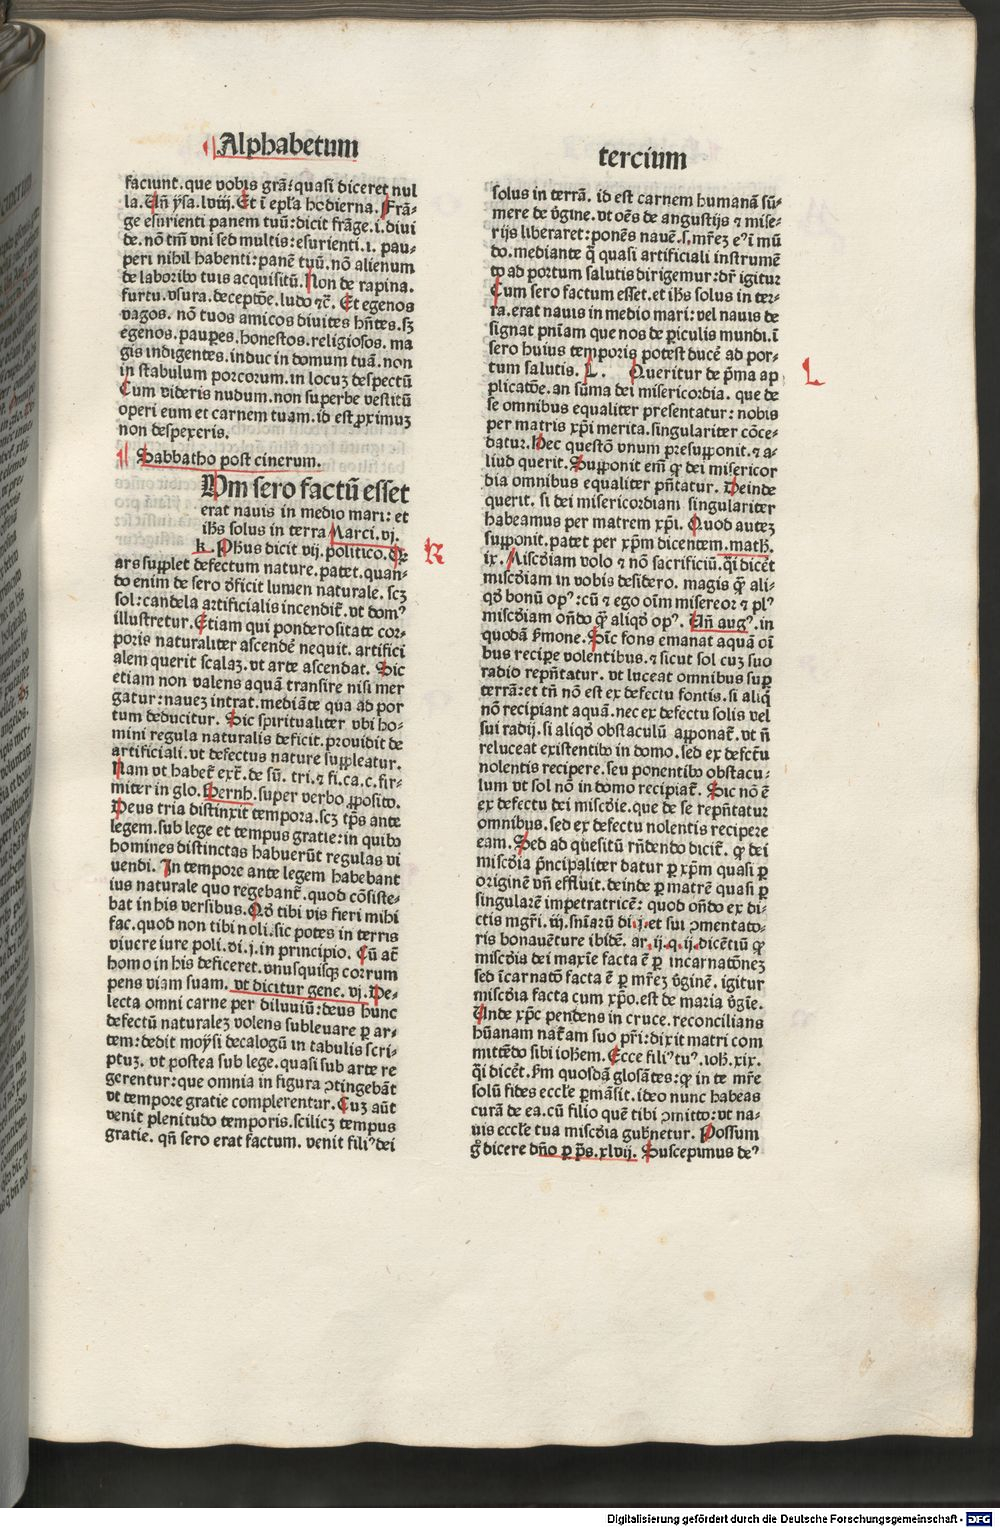 Alphabetum
tercium
faciunt. que vobis grã? quasi diceret nul
la. Eñ ysa. lviij. Et ĩ epl̃a hodierna. Frã⸗
ge esurienti panem tuũ: dicit frãge. i. diui
de. nõ tm̃ vni sed multis: esurienti. i. pau⸗
peri nihil habenti: panẽ tuũ. nõ alienum
de laboribꝰ tuis acquisitũ. Non de rapina.
furtu. vsura. deceptõe. ludo ⁊c̃. Et egenos
vagos. nõ tuos amicos diuites hñtes. sꝫ
egenos. paupes. honestos. religiosos. ma
gis indigentes. induc in domum tuã. non
in stabulum porcorum. in locuꝫ despectũ
Cum videris nudum. non superbe vestitũ
operi eum et carnem tuam. id est proximuꝫ
non despexeris.
Sabbatho post cinerum.
Vm sero factũ esset
erat nauis in medio mari: et
ihs̃ solus in terra Marci. vj.
K. Phus dicit vij. politico. Qꝛ
ars supplet defectum nature. patet. quan⸗
do enim de sero d̃ficit lumen naturale. scꝫ
sol: candela artificialis incendit̃. vt domꝰ
illustretur. Etiam qui ponderositate cor⸗
poris naturaliter ascendẽ nequit. artifici
alem querit scalaꝫ. vt arte ascendat. Sic
etiam non valens aquã transire nisi mer
gatur: naueꝫ intrat. mediãte qua ad por
tum deducitur. Sic spiritualiter vbi ho⸗
mini regula naturalis deficit. prouidit de
artificiali. vt defectus nature suppleatur.
Nam vt habet̃ ext̃. de sũ. tri. ⁊ fi. ca. c. fir⸗
miter in glo. Bernh. super verbo ꝓposito.
Deus tria distinxit tempora. scꝫ tp̃s ante
legem. sub lege et tempus gratie: in quibꝰ
homines distinctas habuerũt regulas vi
uendi. In tempore ante legem habebant
ius naturale quo regebant̃. quod cõsiste⸗
bat in his versibus. Qd̃ tibi vis fieri mihi
fac. quod non tibi noli. sic potes in terris
viuere iure poli. di. j. in principio. Cũ at̃
homo in his deficeret. vnusquisqꝫ corrum
pens viam suam. vt dicitur gene. vj. De⸗
lecta omni carne per diluuiũ: deus hunc
defectũ naturaleꝫ volens subleuare ꝑ ar⸗
tem: dedit moysi decalogũ in tabulis scri⸗
ptuꝫ. vt postea sub lege. quasi sub arte re
gerentur: que omnia in figura ꝯtingebãt
vt tempore gratie complerentur. Cuꝫ aũt
venit plenitudo temporis. scilicꝫ tempus
gratie. qñ sero erat factum. venit filiꝰ dei
solus in terrã. id est carnem humanã sũ⸗
mere de v̾gine. vt oẽs de angustijs ⁊ mise⸗
rijs liberaret: ponẽs nauẽ. s. mr̃eꝫ eꝰ ĩ mũ
do. mediante q̃ quasi artificiali instrumẽ
to ad portum salutis dirigemur: dr̃ igitur
Cum sero factum esset. et ihs̃ solus in ter⸗
ra. erat nauis in medio mari: vel nauis de
signat pñiam que nos de ꝑiculis mundi. ĩ
sero huius temporis potest ducẽ ad por⸗
tum salutis. L. Queritur de p̃ma ap
plicatõe. an sũma dei misericordia. que de
se omnibus equaliter presentatur: nobis
per matris xp̃i merita. singulariter cõce⸗
datur. Hec questõ vnum presupponit. ⁊ a⸗
liud querit. Supponit em̃ ꝙ dei misericor
dia omnibus equaliter pñtatur. Deinde
querit. si dei misericordiam singulariter
habeamus per matrem xp̃i. Quod auteꝫ
supponit. patet per xp̃m dicentem. math̃.
ix. Misc̃diam volo ⁊ nõ sacrificiũ. q̃i dicẽt
misc̃diam in vobis desidero. magis q̃ ali⸗
qd̃ bonũ opꝰ: cũ ⁊ ego oĩm misereor ⁊ plꝰ
misc̃diam oñdo q̃ aliqd̃ opꝰ. Eñ augꝰ. in
quodã ẜmone. Sic̃ fons emanat aquã oĩ
bus recipe volentibus. ⁊ sicut sol cuꝫ suo
radio repñtatur. vt luceat omnibus suꝑ
terrã: et tñ nõ est ex defectu fontis. si aliq̃
nõ recipiant aquã. nec ex defectu solis vel
sui radij. si aliqd̃ obstaculũ apponat̃. vt ñ
reluceat existentibꝰ in domo. sed ex defctũ
nolentis recipere. seu ponentibꝰ obstacu⸗
lum vt sol nõ in domo recipiat̃. Sic nõ ẽ
ex defectu dei misc̃die. que de se repñtatur
omnibus. sed ex defectu nolentis recipere
eam. Sed ad q̃esitũ rñdendo dicit̃. ꝙ dei
misc̃dia p̃ncipaliter datur ꝑ xp̃m quasi ꝑ
originẽ vñ effluit. deinde ꝑ matrẽ quasi ꝑ
singularẽ impetratricẽ: quod oñdo ex di⸗
ctis mgr̃i. iij. sniarũ di. j. et sui ꝯmentato⸗
ris bonauẽture ibidẽ. ar. ij. q. ij. dicẽtiũ ꝙ
misc̃dia dei maxĩe facta ẽ ꝑ incarnatõneꝫ
sed ĩcarnatõ facta ẽ ꝑ mr̃eꝫ v̾ginẽ. igitur
misc̃dia facta cum xp̃o. est de maria v̾gĩe.
Unde xp̃c pendens in cruce. reconcilians
hũanam nat̃am suo pr̃i: dixit matri com
mittẽdo sibi ioh̃em. Ecce filiꝰ tuꝰ. ioh̃. xix.
q̃i dicẽt. ẜm quosdã glosãtes: ꝙ in te mr̃e
solũ fides eccl̃e ꝑmãsit. ideo nunc habeas
curã de ea. cũ filio quẽ tibi ꝯmitto: vt na⸗
uis eccl̃e tua misc̃dia gub̾netur. Possum
g̊ dicere dño ꝑ p̃s. xlvij. Suscepimus deꝰ
R
L
Digitalisierung gefördert durch die Deutsche Forschungsgemeinschaft - DFG